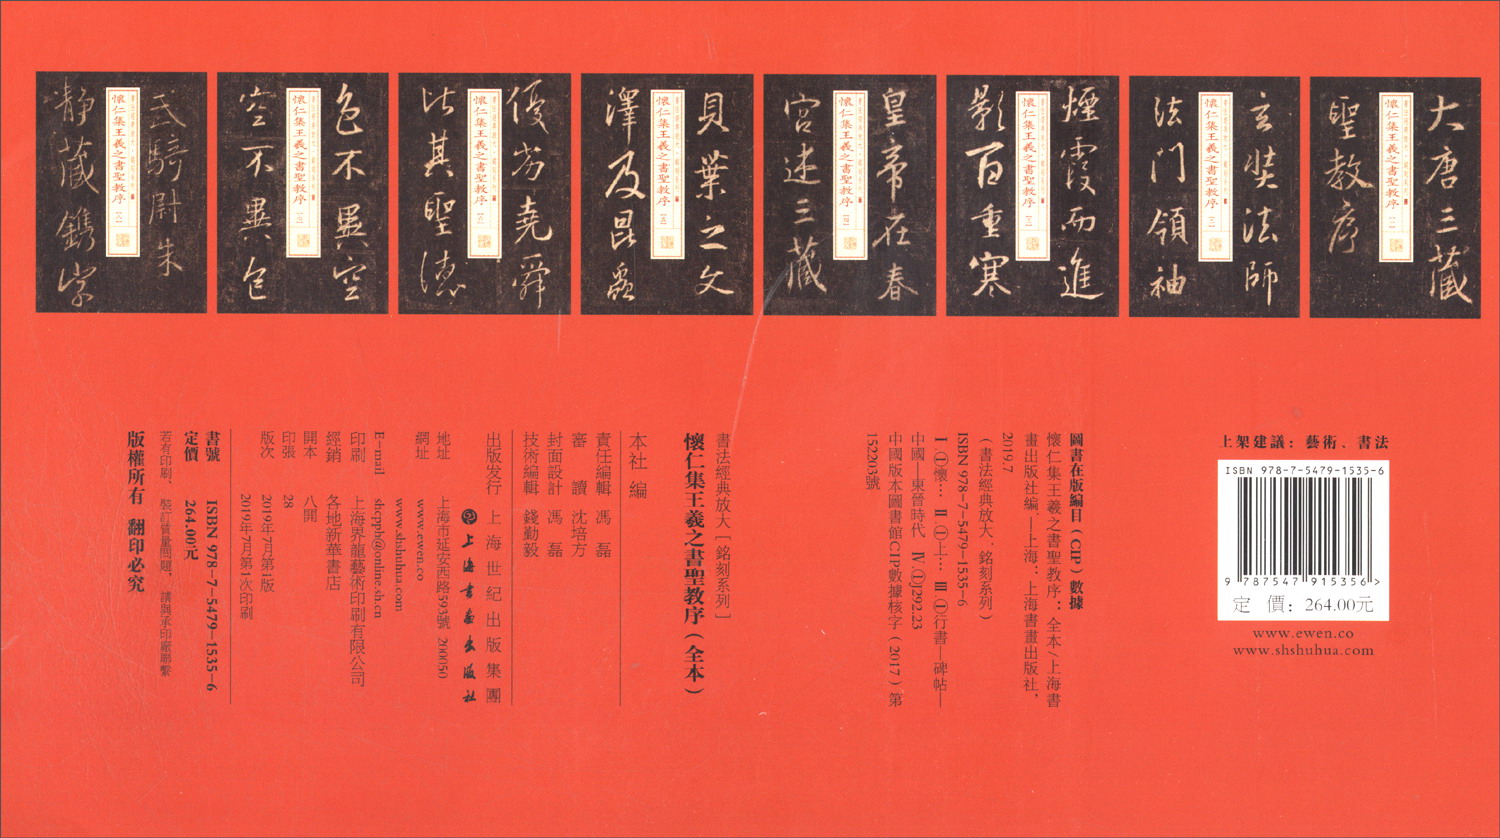 大唐三藏
聖教序
懷仁集王羲之書聖教序
玄奘法師
法門領袖
懷仁集王羲之書聖教序
煙霞而進
影百重寒
懷仁集王羲之書聖教序
皇帝在春
宮述三藏
懷仁集王羲之書聖教序
貝葉之文
澤及昆蟲
懷仁集王羲之書聖教序
優劣堯舜
比其聖德
懷仁集王羲之書聖教序
色不異空
空不異色
懷仁集王羲之書聖教序
武騎尉朱
靜藏鐫字
懷仁集王羲之書聖教序
上架建議：藝術、書法
ISBN 978-7-5479-1535-6
9 787547 915356 >
定 價：264.00元
www.ewen.co
www.shshuhua.com
圖書在版編目（CIP）數據
懷仁集王羲之書聖教序：全本/上海書
畫出版社編.—上海：上海書畫出版社，
2019.7
（書法經典放大．銘刻系列）
ISBN 978-7-5479-1535-6
Ⅰ.①懷… Ⅱ.①上… Ⅲ.①行書—碑帖—
中國—東晉時代 Ⅳ.①J292.23
中國版本圖書館CIP數據核字（2017）第
152203號
書法經典放大［銘刻系列］
懷仁集王羲之書聖教序（全本）
本社 編
責任編輯 馮 磊
審 讀 沈培方
封面設計 馮 磊
技術編輯 錢勤毅
出版发行 上海世紀出版集團
上海書畫出版社
地址 上海市延安西路593號 200050
網址 www.ewen.co
www.shshuhua.com
E-mail shcpph@online.sh.cn
印刷 上海界龍藝術印刷有限公司
經銷 各地新華書店
開本 八開
印張 28
版次 2019年7月第1版
2019年7月第1次印刷
書號 ISBN 978-7-5479-1535-6
定價 264.00元
若有印刷、裝訂質量問題，請與承印廠聯繫
版權所有 翻印必究